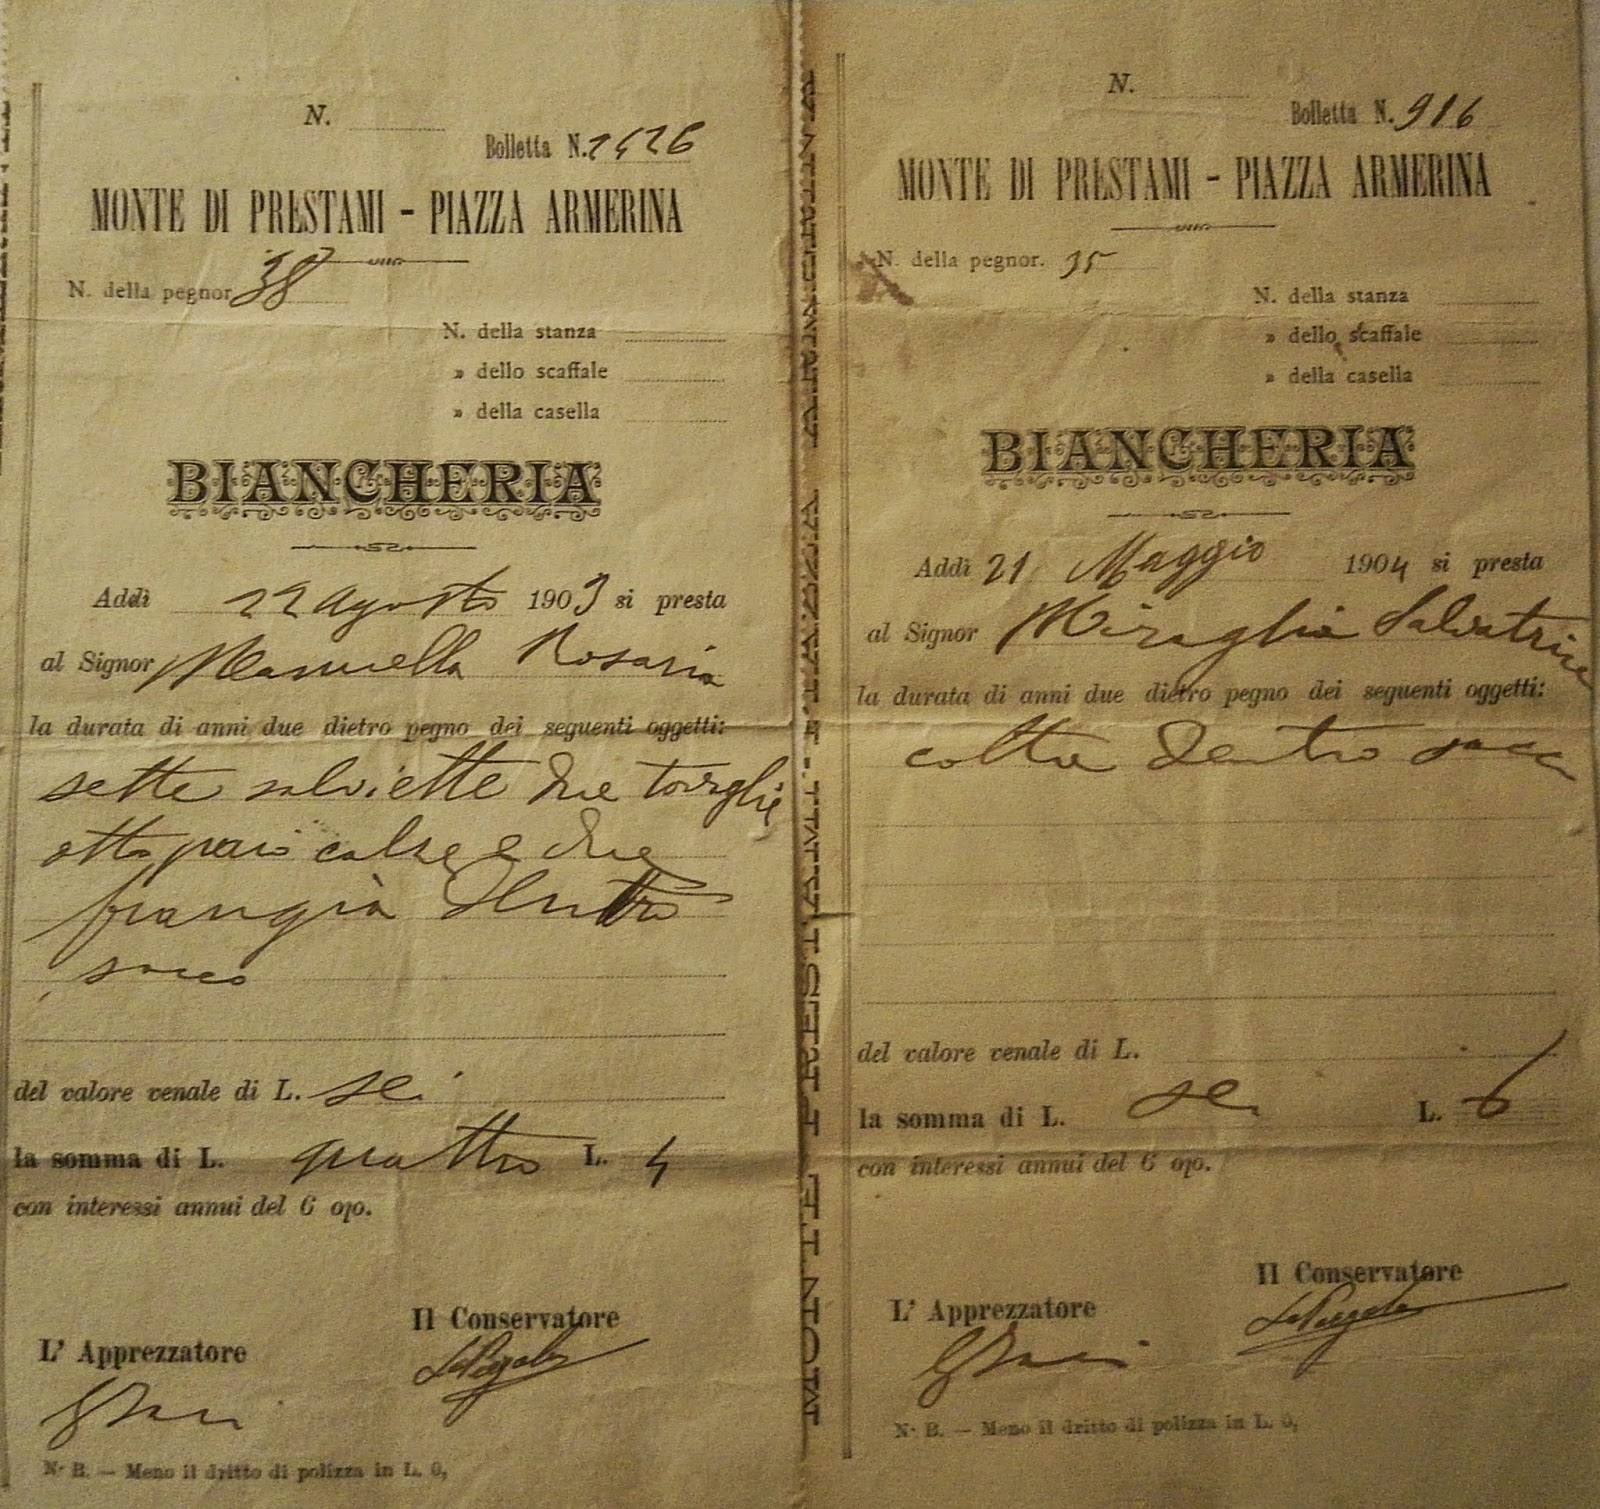 N.
Bolletta N. 2426
MONTE DI PRESTAMI - PIAZZA ARMERINA
N. della pegnor. 38
N. della stanza
» dello scaffale
» della casella
BIANCHERIA
Addì 22 Agosto 1903 si presta
al Signor Rosaria
la durata di anni due dietro pegno dei seguenti oggetti:
sette salviette due tovaglie
otto paio calze e due
frangia dentro
sacco
del valore venale di L. sei
la somma di L. quattro L. 4
con interessi annui del 6 o/o.
Il Conservatore
L' Apprezzatore
N. B. — Meno il dritto di polizza in L. 0,
N.
Bolletta N. 916
MONTE DI PRESTAMI - PIAZZA ARMERINA
N. della pegnor. 35
N. della stanza
» dello scaffale
» della casella
BIANCHERIA
Addì 21 Maggio 1904 si presta
al Signor Miraglia Salvatrice
la durata di anni due dietro pegno dei seguenti oggetti:
coltra dentro sacco
del valore venale di L.
la somma di L. sei L. 6
con interessi annui del 6 o/o.
Il Conservatore
L' Apprezzatore
N. B. — Meno il dritto di polizza in L. 0,